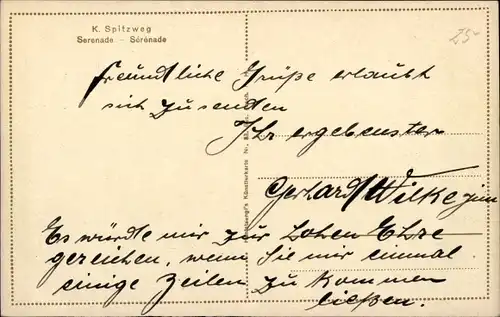 K. Spitzweg
Serenade - Sérénade
25-
freundliche Grüße erlaubt
sich zu senden
Ihr ergebenster
Gerhard Wilke jun
Es würde mir zur hohen Ehre
gereichen, wenn Sie mir einmal
einige Zeilen zu kommen
ließen.
Künstlerkarte Nr.